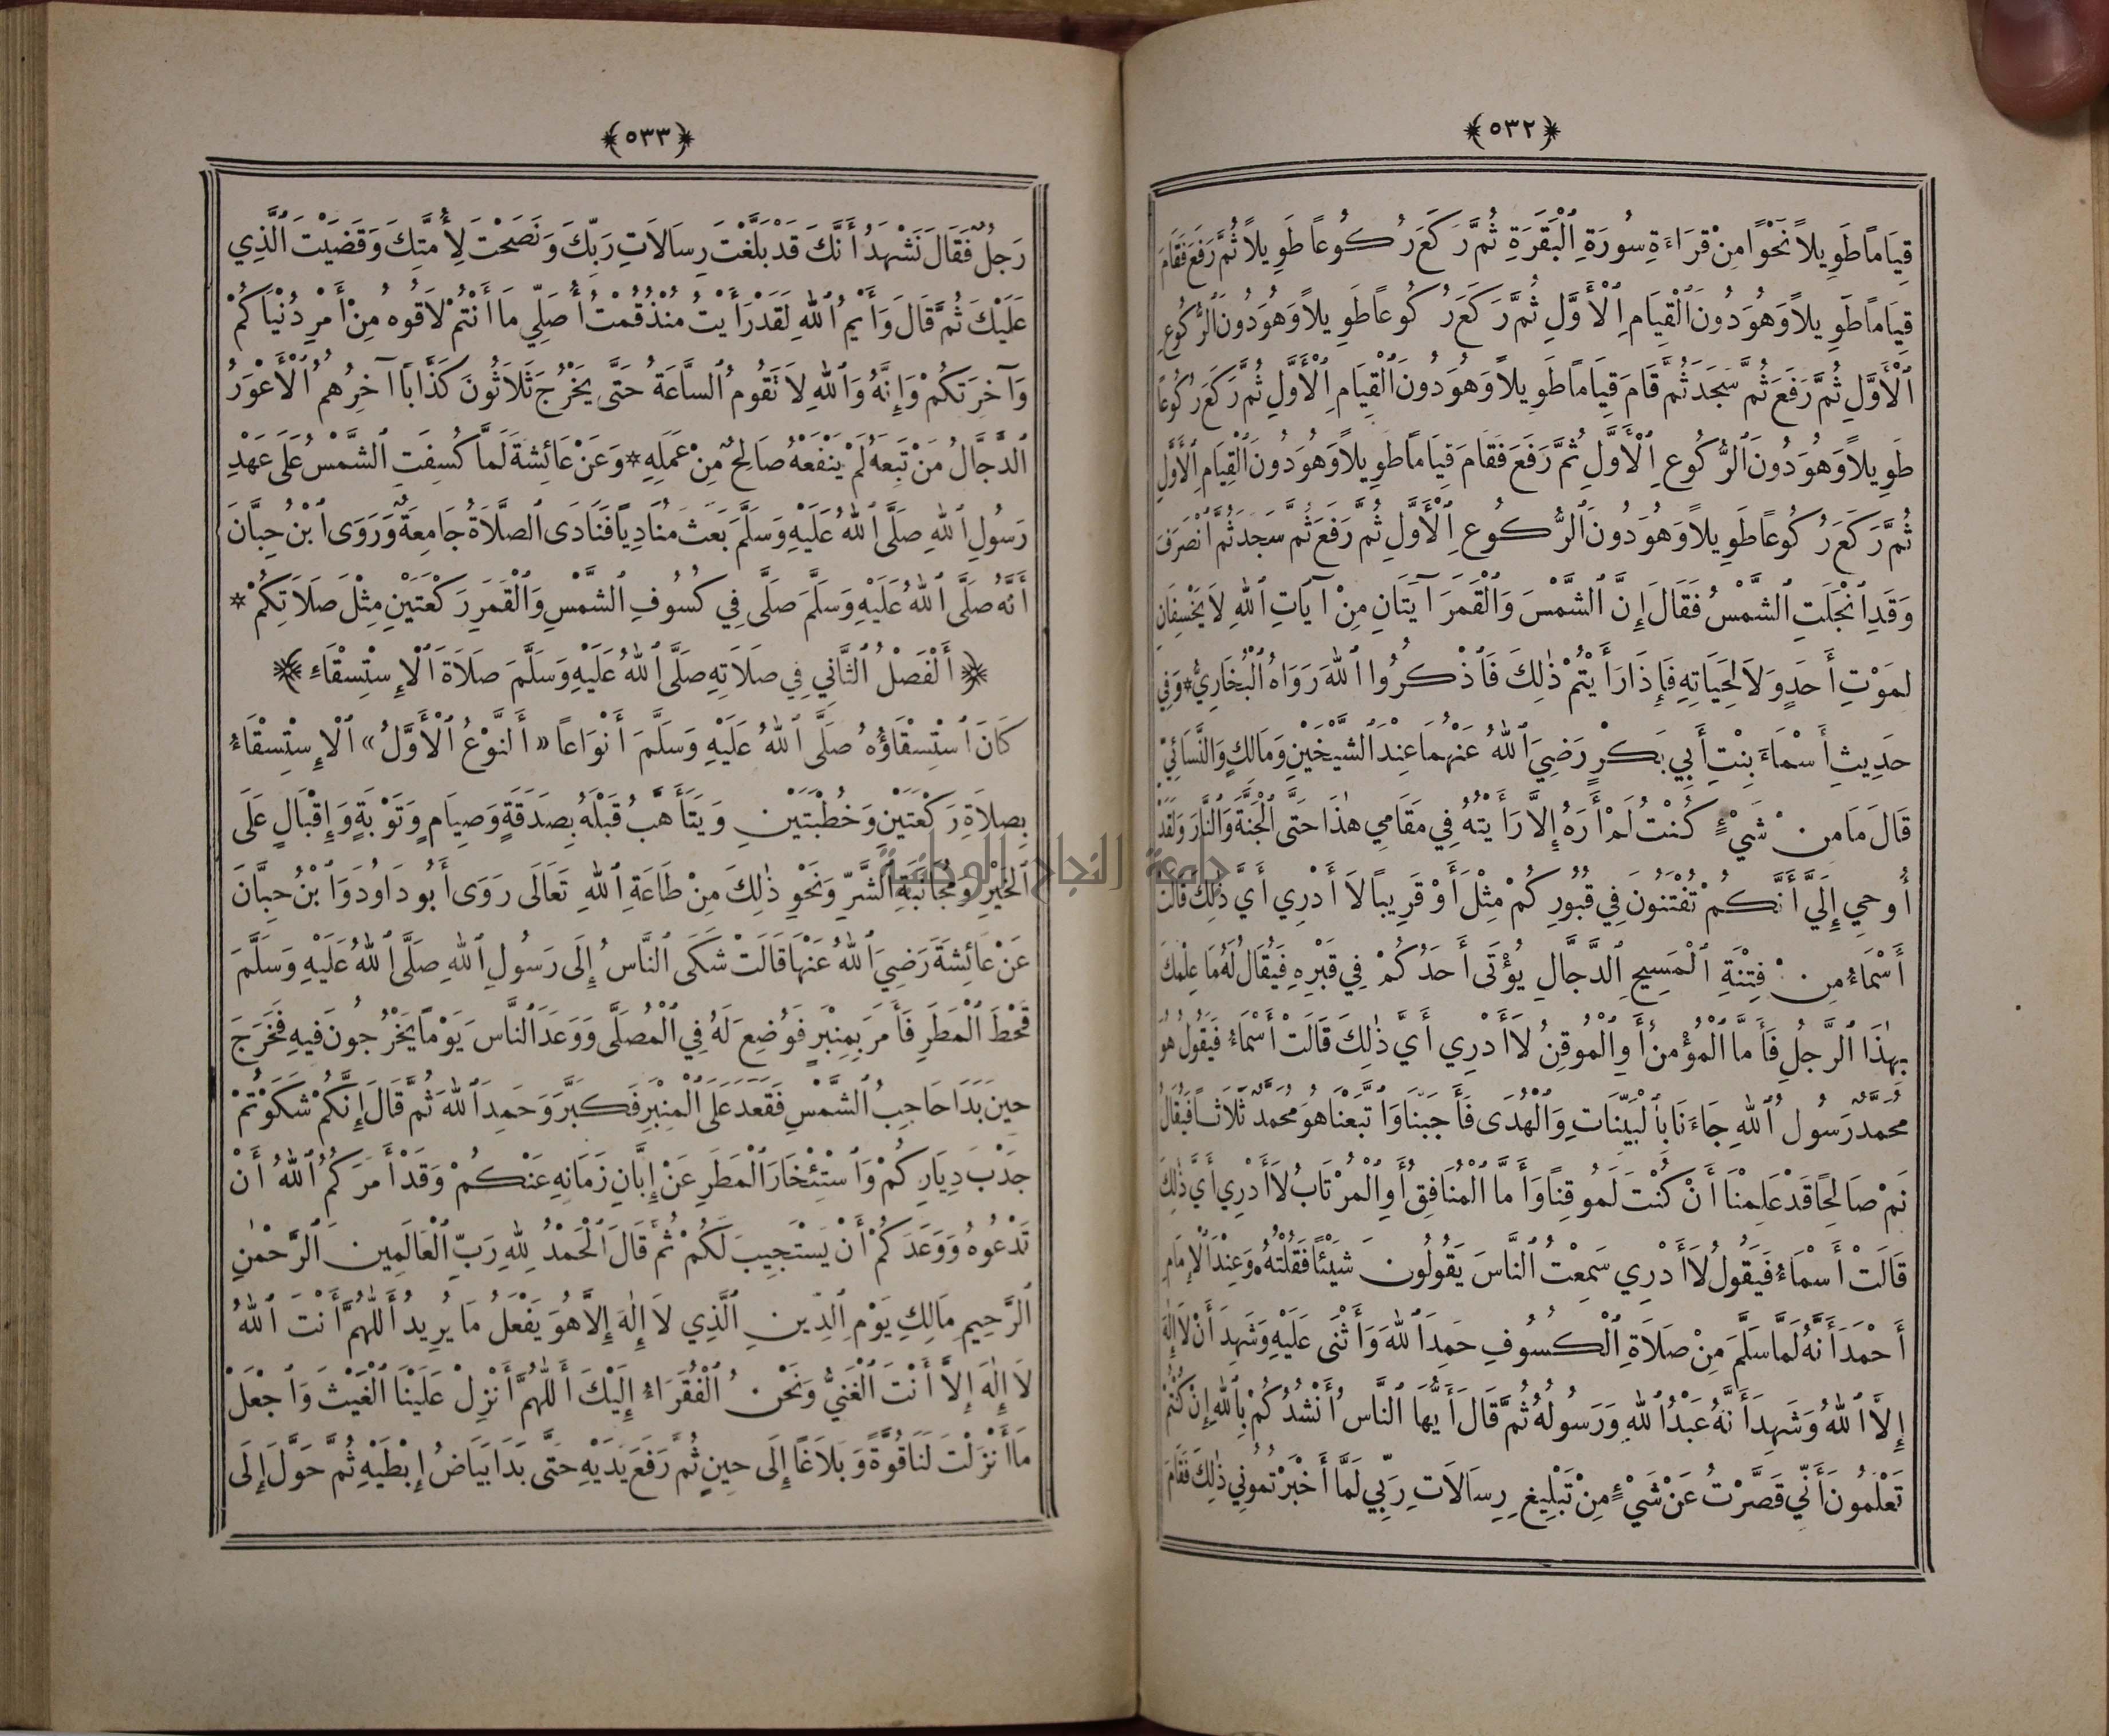 ﴿٥٣٢﴾
قِيَامًا طَوِيلاً نَحْوًا مِنْ قِرَاءَةِ سُورَةِ ٱلْبَقَرَةِ ثُمَّ رَكَعَ رُكُوعاً طَوِيلاً ثُمَّ رَفَعَ فَقَامَ
قِيَامًا طَوِيلاً وَهُوَ دُونَ ٱلْقِيَامِ ٱلْأَوَّلِ ثُمَّ رَكَعَ رُكُوعاً طَوِيلاً وَهُوَ دُونَ ٱلرُّكُوعِ
ٱلْأَوَّلِ ثُمَّ رَفَعَ ثُمَّ سَجَدَ ثُمَّ قَامَ قِيَامًا طَوِيلاً وَهُوَ دُونَ ٱلْقِيَامِ ٱلْأَوَّلِ ثُمَّ رَكَعَ رُكُوعاً
طَوِيلاً وَهُوَ دُونَ ٱلرُّكُوعِ ٱلْأَوَّلِ ثُمَّ رَفَعَ فَقَامَ قِيَامًا طَوِيلاً وَهُوَ دُونَ ٱلْقِيَامِ ٱلْأَوَّلِ
ثُمَّ رَكَعَ رُكُوعًا طَوِيلاً وَهُوَ دُونَ ٱلرُّكُوعِ ٱلْأَوَّلِ ثُمَّ رَفَعَ ثُمَّ سَجَدَ ثُمَّ ٱنْصَرَفَ
وَقَدِ ٱنْجَلَتِ ٱلشَّمْسُ فَقَالَ إِنَّ ٱلشَّمْسَ وَٱلْقَمَرَ آيَتَانِ مِنْ آيَاتِ ٱللهِ لاَ يَخْسِفَانِ
لِمَوْتِ أَحَدٍ وَلاَ لِحَيَاتِهِ فَإِذَا رَأَيْتُمْ ذٰلِكَ فَٱذْكُرُوا ٱللهَ رَوَاهُ ٱلْبُخَارِيُّ * وَفِي
حَدِيثِ أَسْمَاءَ بِنْتِ أَبِي بَكْرٍ رَضِيَ ٱللهُ عَنْهُمَا عِنْدَ ٱلشَّيْخَيْنِ وَمَالِكٍ وَٱلنَّسَائِيِّ
قَالَ مَا مِنْ شَيْءٍ كُنْتُ لَمْ أَرَهُ إِلاَّ رَأَيْتُهُ فِي مَقَامِي هٰذَا حَتَّى ٱلْجَنَّةَ وَٱلنَّارَ وَلَقَدْ
أُوحِي إِلَيَّ أَنَّكُمْ تُفْتَنُونَ فِي قُبُورِكُمْ مِثْلَ أَوْ قَرِيباً لاَ أَدْرِي أَيَّ ذٰلِكَ قَالَتْ
أَسْمَاءُ مِنْ فِتْنَةِ ٱلْمَسِيحِ ٱلدَّجَّالِ يُؤْتَى أَحَدُكُمْ فِي قَبْرِهِ فَيُقَالُ لَهُ مَا عِلْمُكَ
بِهٰذَا ٱلرَّجُلِ فَأَمَّا ٱلْمُؤْمِنُ أَوِ ٱلْمُوقِنُ لاَ أَدْرِي أَيَّ ذٰلِكَ قَالَتْ أَسْمَاءُ فَيَقُولُ هُوَ
مُحَمَّدٌ رَسُولُ ٱللهِ جَاءَنَا بِٱلْبَيِّنَاتِ وَٱلْهُدَى فَأَجَبْنَا وَٱتَّبَعْنَا هُوَ مُحَمَّدٌ ثَلاَثًا فَيُقَالُ
نَمْ صَالِحًا قَدْ عَلِمْنَا أَنْ كُنْتَ لَمُوقِنًا وَأَمَّا ٱلْمُنَافِقُ أَوِ ٱلْمُرْتَابُ لاَ أَدْرِي أَيَّ ذٰلِكَ
قَالَتْ أَسْمَاءُ فَيَقُولُ لاَ أَدْرِي سَمِعْتُ ٱلنَّاسَ يَقُولُونَ شَيْئًا فَقُلْتُهُ. وَعِنْدَ ٱلْإِمَامِ
أَحْمَدَ أَنَّهُ لَمَّا سَلَّمَ مِنْ صَلاَةِ ٱلْكُسُوفِ حَمِدَ ٱللهَ وَأَثْنَى عَلَيْهِ وَشَهِدَ أَنْ لاَ إِلٰهَ
إِلاَّ ٱللهُ وَشَهِدَ أَنَّهُ عَبْدُ ٱللهِ وَرَسُولُهُ ثُمَّ قَالَ أَيُّهَا ٱلنَّاسُ أَنْشُدُكُمْ بِٱللهِ إِنْ كُنْتُمْ
تَعْلَمُونَ أَنِّي قَصَّرْتُ عَنْ شَيْءٍ مِنْ تَبْلِيغِ رِسَالاَتِ رَبِّي لَمَّا أَخْبَرْتُمُونِي ذٰلِكَ فَقَامَ
﴿٥٣٣﴾
رَجُلٌ فَقَالَ نَشْهَدُ أَنَّكَ قَدْ بَلَّغْتَ رِسَالاَتِ رَبِّكَ وَنَصَحْتَ لِأُمَّتِكَ وَقَضَيْتَ ٱلَّذِي
عَلَيْكَ ثُمَّ قَالَ وَٱيْمُ ٱللهِ لَقَدْ رَأَيْتُ مُنْذُ قُمْتُ أُصَلِّي مَا أَنْتُمْ لاَقُوهُ مِنْ أَمْرِ دُنْيَاكُمْ
وَآخِرَتِكُمْ وَإِنَّهُ وَٱللهِ لاَ تَقُومُ ٱلسَّاعَةُ حَتَّى يَخْرُجَ ثَلاَثُونَ كَذَّابًا آخِرُهُمُ ٱلْأَعْوَرُ
ٱلدَّجَّالُ مَنْ تَبِعَهُ لَمْ يَنْفَعْهُ صَالِحٌ مِنْ عَمَلِهِ * وَعَنْ عَائِشَةَ لَمَّا كُسِفَتِ ٱلشَّمْسُ عَلَى عَهْدِ
رَسُولِ ٱللهِ صَلَّى ٱللهُ عَلَيْهِ وَسَلَّمَ بَعَثَ مُنَادِيًا فَنَادَى ٱلصَّلاَةُ جَامِعَةٌ وَرَوَى ٱبْنُ حِبَّانَ
أَنَّهُ صَلَّى ٱللهُ عَلَيْهِ وَسَلَّمَ صَلَّى فِي كُسُوفِ ٱلشَّمْسِ وَٱلْقَمَرِ رَكْعَتَيْنِ مِثْلَ صَلاَتِكُمْ *
﴿ أَلْفَصْلُ ٱلثَّانِي فِي صَلاَتِهِ صَلَّى ٱللهُ عَلَيْهِ وَسَلَّمَ صَلاَةَ ٱلْإِسْتِسْقَاءِ ﴾
كَانَ ٱسْتِسْقَاؤُهُ صَلَّى ٱللهُ عَلَيْهِ وَسَلَّمَ أَنْوَاعاً «أَلنَّوْعُ ٱلْأَوَّلُ» ٱلْإِسْتِسْقَاءُ
بِصِلاَةِ رَكْعَتَيْنِ وَخُطْبَتَيْنِ وَيَتَأَهَّبُ قَبْلَهُ بِصَدَقَةٍ وَصِيَامٍ وَتَوْبَةٍ وَإِقْبَالٍ عَلَى
ٱلْخَيْرِ وَمُجَانَبَةِ ٱلشَّرِّ وَنَحْوِ ذٰلِكَ مِنْ طَاعَةِ ٱللهِ تَعَالَى رَوَى أَبُو دَاوُدَ وَٱبْنُ حِبَّانَ
عَنْ عَائِشَةَ رَضِيَ ٱللهُ عَنْهَا قَالَتْ شَكَى ٱلنَّاسُ إِلَى رَسُولِ ٱللهِ صَلَّى ٱللهُ عَلَيْهِ وَسَلَّمَ
قَحْطَ ٱلْمَطَرِ فَأَمَرَ بِمِنْبَرٍ فَوُضِعَ لَهُ فِي ٱلْمُصَلَّى وَوَعَدَ ٱلنَّاسَ يَوْمًا يَخْرُجُونَ فِيهِ فَخَرَجَ
حِينَ بَدَا حَاجِبُ ٱلشَّمْسِ فَقَعَدَ عَلَى ٱلْمِنْبَرِ فَكَبَّرَ وَحَمِدَ ٱللهَ ثُمَّ قَالَ إِنَّكُمْ شَكَوْتُمْ
جَدْبَ دِيَارِكُمْ وَٱسْتِئْخَارَ ٱلْمَطَرِ عَنْ إِبَّانِ زَمَانِهِ عَنْكُمْ وَقَدْ أَمَرَكُمُ ٱللهُ أَنْ
تَدْعُوهُ وَوَعَدَكُمْ أَنْ يَسْتَجِيبَ لَكُمْ ثُمَّ قَالَ ٱلْحَمْدُ لِلهِ رَبِّ ٱلْعَالَمِينَ ٱلرَّحْمٰنِ
ٱلرَّحِيمِ مَالِكِ يَوْمِ ٱلدِّينِ ٱلَّذِي لاَ إِلٰهَ إِلاَّ هُوَ يَفْعَلُ مَا يُرِيدُ أَللّٰهُمَّ أَنْتَ ٱللهُ
لاَ إِلٰهَ إِلاَّ أَنْتَ ٱلْغَنِيُّ وَنَحْنُ ٱلْفُقَرَاءُ إِلَيْكَ أَللّٰهُمَّ أَنْزِلْ عَلَيْنَا ٱلْغَيْثَ وَٱجْعَلْ
مَا أَنْزَلْتَ لَنَا قُوَّةً وَبَلاَغًا إِلَى حِينٍ ثُمَّ رَفَعَ يَدَيْهِ حَتَّى بَدَا بَيَاضُ إِبْطَيْهِ ثُمَّ حَوَّلَ إِلَى
جامعة النجاح الوطنية